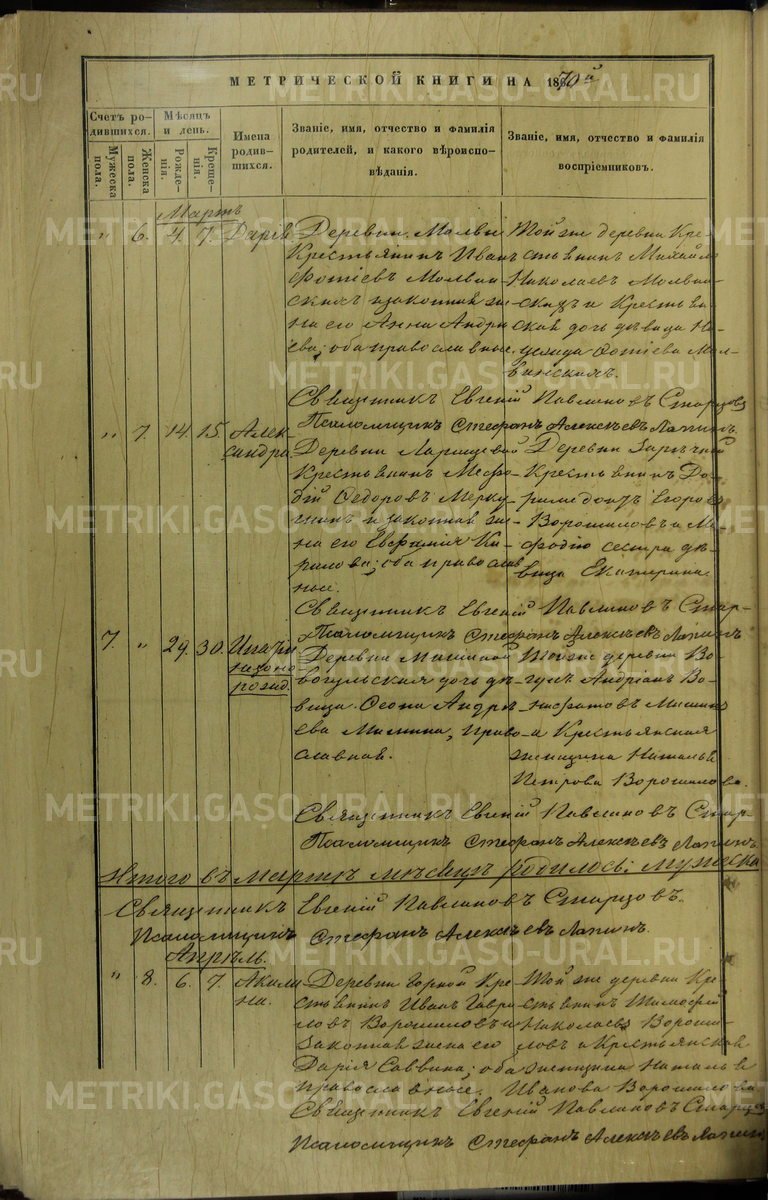 МЕТРИЧЕСКОЙ КНИГИ НА 1870й
Счетъ родившихся.
Мужеска пола.
Женска пола.
Мѣсяцъ и день.
Рожденія.
Крещенія.
Имена родившихся.
Званіе, имя, отчество и фамилія родителей, и какого вѣроисповѣданія.
Званіе, имя, отчество и фамилія воспріемниковъ.
Мартъ
" 6. 4. 7. Дарія
Деревни
Крестьянинъ Иванъ
Фотіевъ
и законная же-
на его Анна Андре-
ева; оба православные.
Той же деревни Кре-
стьянинъ Михаилъ
Николаевъ
и Крестьян-
ская дочь дѣвица
Фотіева
Священникъ Евгеній Павлиновъ Старцовъ
Псаломщикъ Стефанъ Алексѣевъ Лапинъ.
" 7. 14. 15. Алек-
сандра
Деревни
Крестьянинъ
Ѳедоровъ Мерку-
и законная же-
на его Евфимія Ки-
рилова; оба православ-
ные.
Деревни Зарѣчной
Крестьянинъ
Егоровъ
Ворошиловъ и
сестра дѣ-
вица Екатерина.
Священникъ Евгеній Павлиновъ Стар-
Псаломщикъ Стефанъ Алексѣевъ Лапинъ
7. " 29. 30.
незако-
рожд.
Деревни
вогульская дочь дѣ-
вица Андре-
ева, право-
славная.
Той же деревни Во-
гулъ Андріанъ
и Крестьянская
женщина Наталья
Петрова Ворошилова.
Священникъ Евгеній Павлиновъ Стар-
Псаломщикъ Стефанъ Алексѣевъ Лапинъ.
Итого въ Мартѣ мѣсяцѣ родилось: мужеска
Священникъ Евгеній Павлиновъ Старцовъ.
Псаломщикъ Стефанъ Алексѣевъ Лапинъ.
Апрѣль.
" 8. 6. 7. Акили-
на.
Деревни Горной Кре-
стьянинъ Иванъ Гаври-
ловъ Ворошиловъ и
законная жена его
Дарія Саввина; оба
православные.
Той же деревни Кре-
стьянинъ Тимофей
Николаевъ Вороши-
ловъ и Крестьянская
женщина Наталья
Иванова Ворошилова
Священникъ Евгеній Павлиновъ Старцовъ
Псаломщикъ Стефанъ Алексѣевъ Лапинъ
METRIKI.GASO-URAL.RU